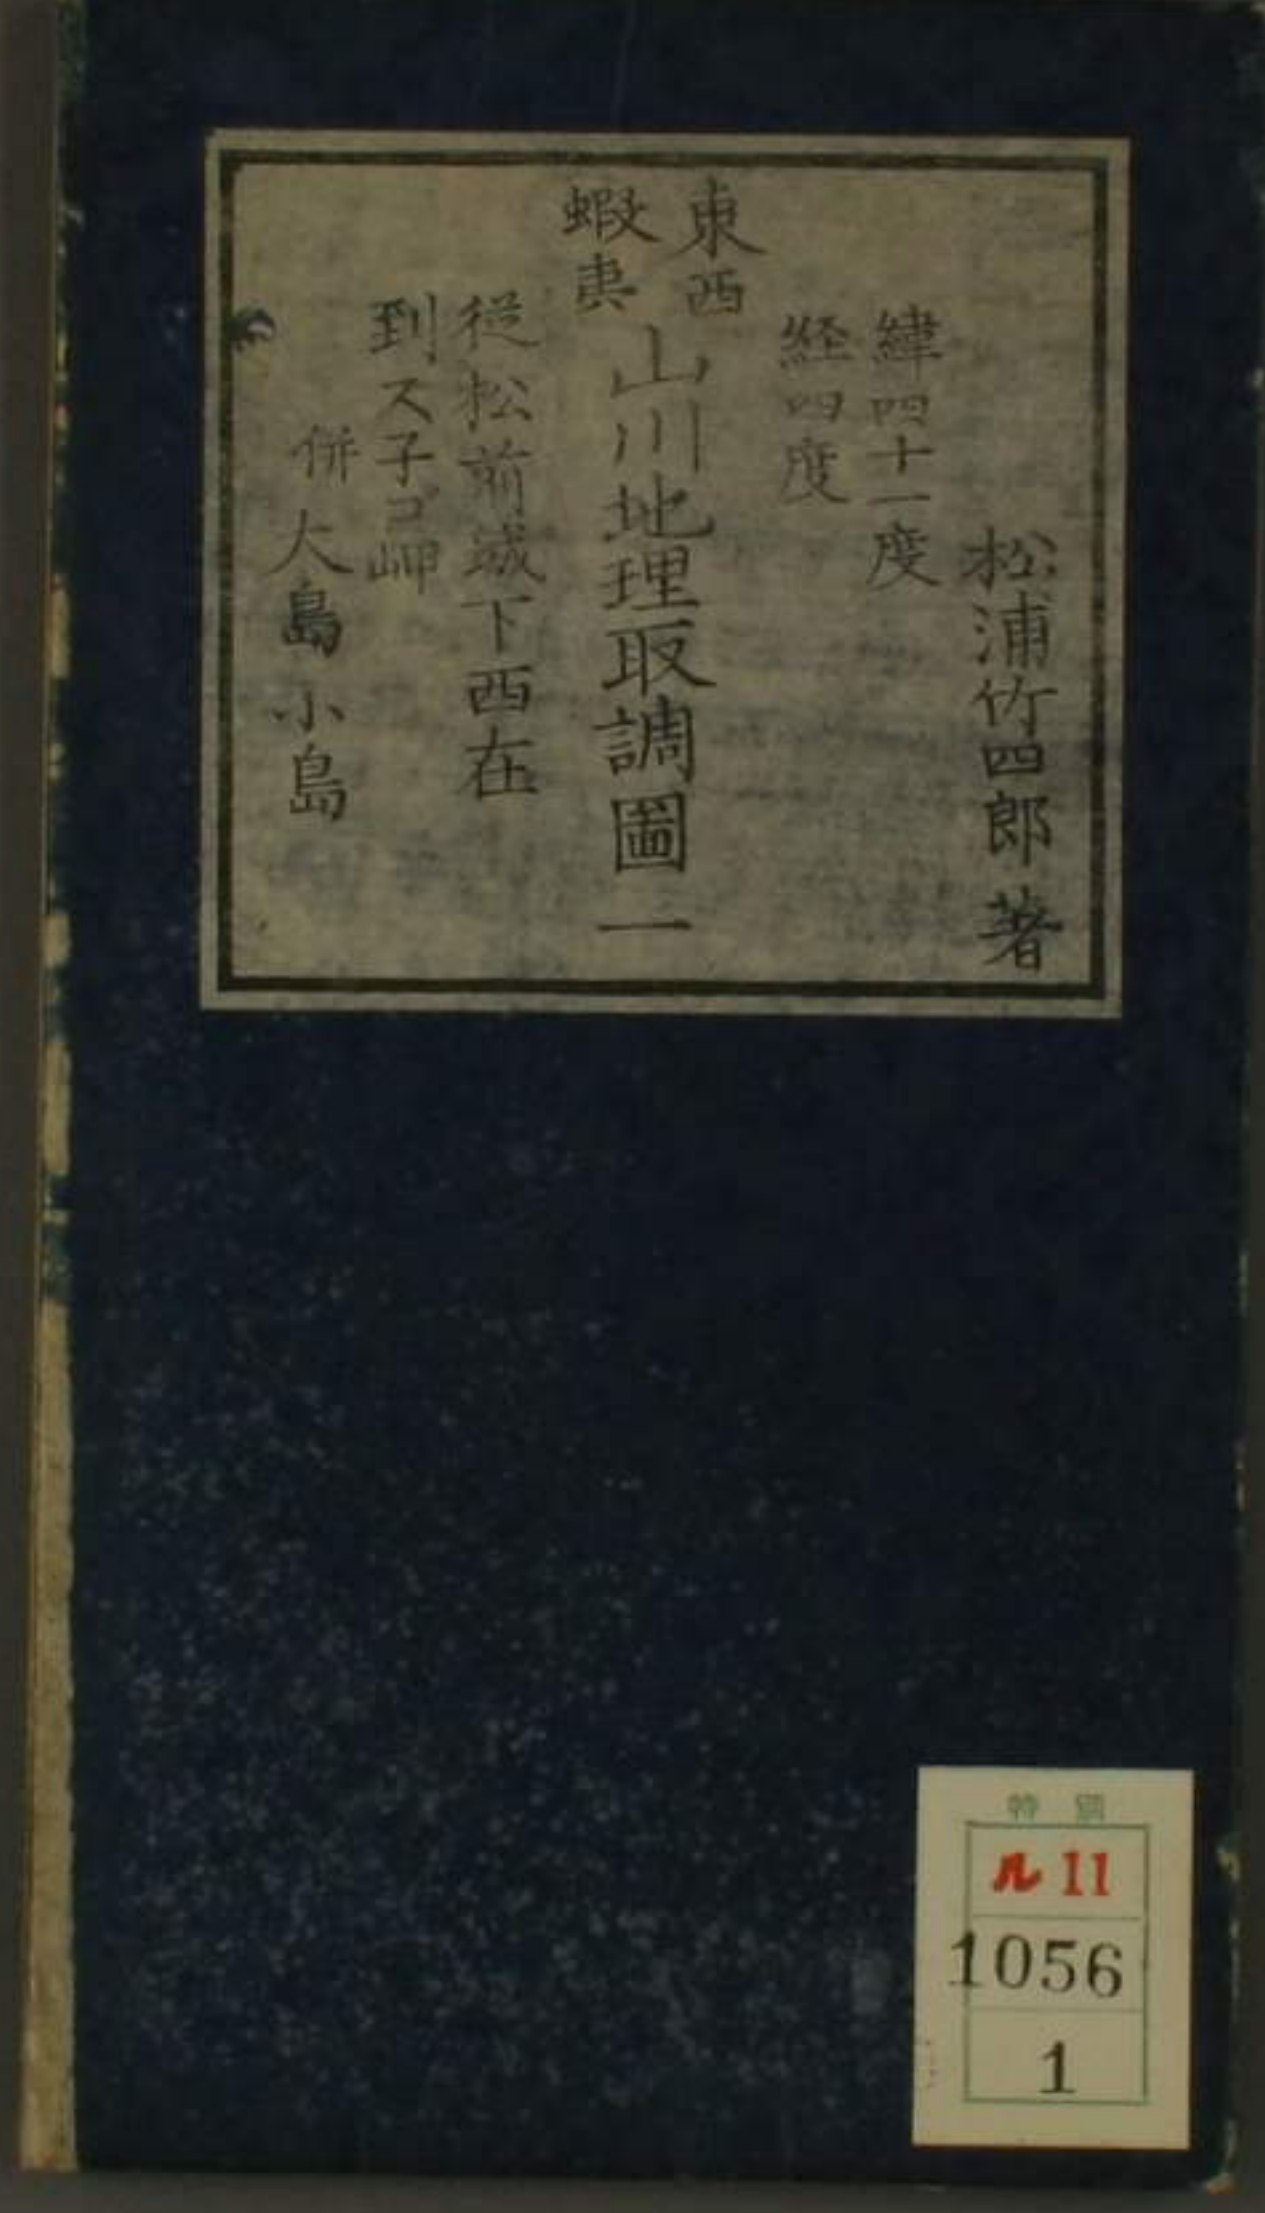 松浦竹四郎著
緯四十一度
経四度
東西
蝦夷
山川地理取調圖 一
従松前城下西在
到ス子ゴ岬
併大島小島
特別
ル11
1056
1